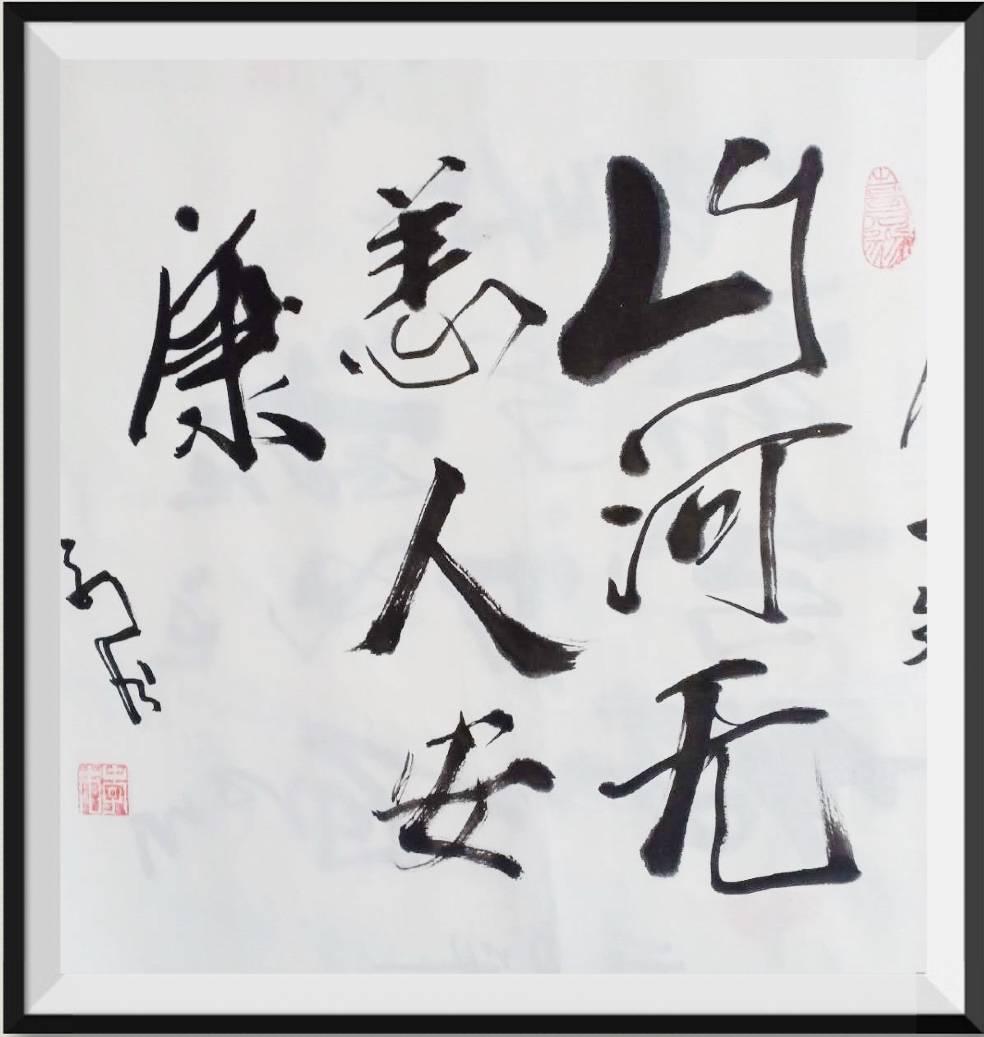 山河无
恙人安
康